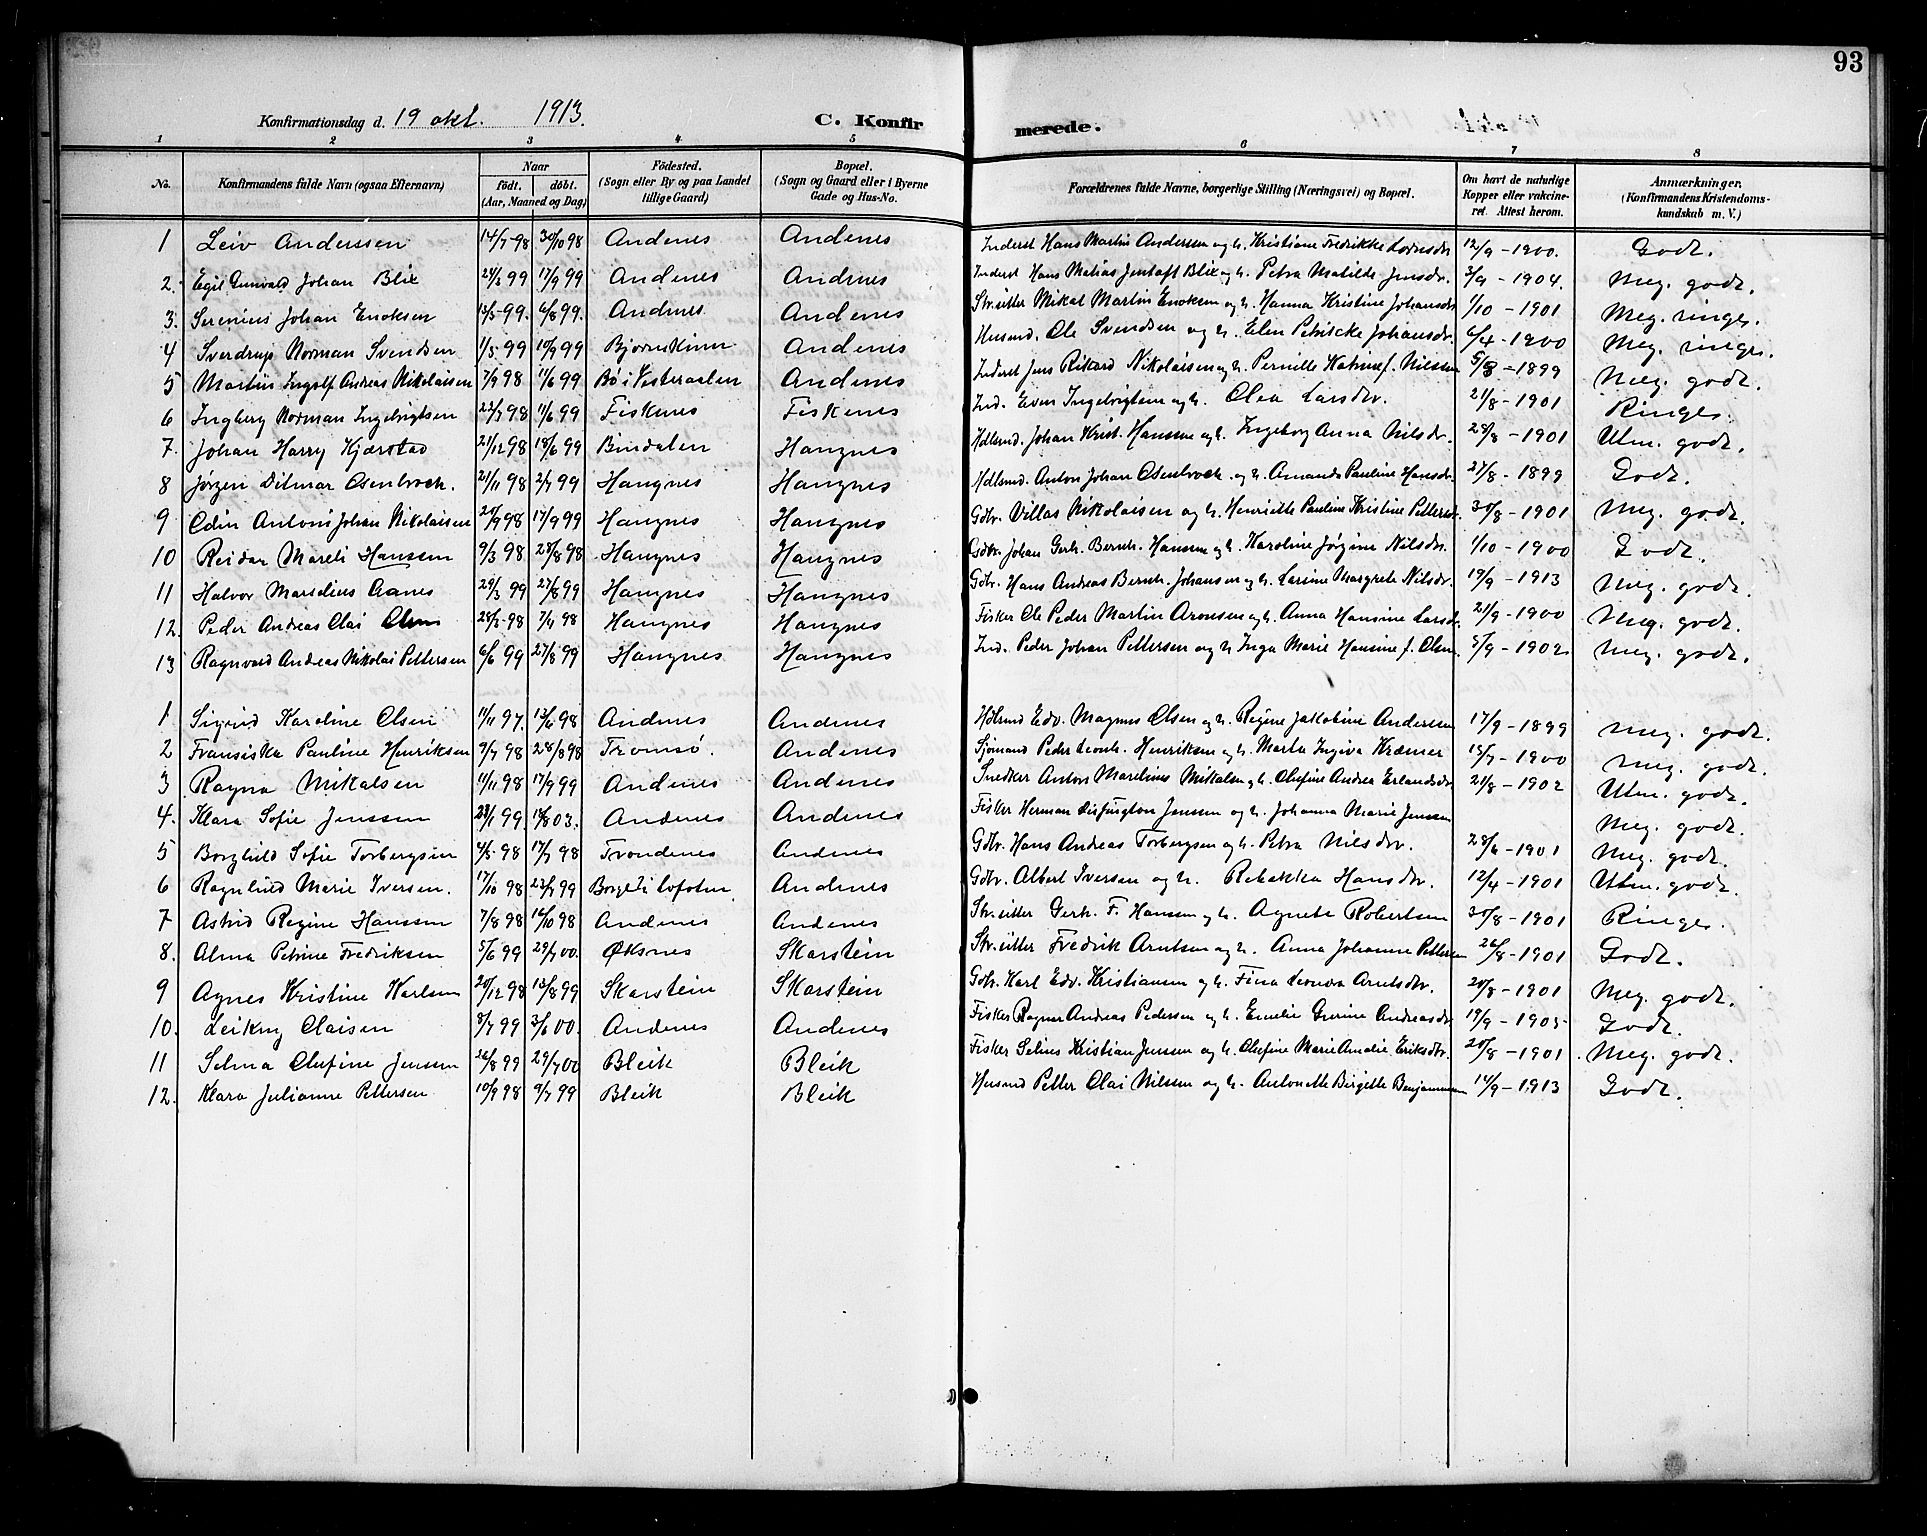 93
Konfirmationsdag d. 19 okt. 1913. C. Konfirmerede.
1 2 3 4 5 6 7 8
No. Konfirmandens fulde Navn (ogsaa Efternavn) Naar födt. döbt. (Aar, Maaned og Dag) Födested. (Sogn eller By og paa Landet tillige Gaard) Bopæl. (Sogn og Gaard eller i Byerne Gade og Hus-No. Forældrenes fulde Navne, borgerlige Stilling (Næringsvei) og Bopæl. Om havt de naturlige Kopper eller vakcineret. Attest herom. Anmærkninger. (Konfirmandens Kristendomskundskab m. V.)
1 Leiv Anderssen 14/7 98 30/10 98 Andenes Andenes Inderst Hans Martin Anderssen og h. Kristiane Fredrikke 12/9 - 1900. Godt.
2. Egil Gunvald Johan Blix 24/3 99 17/9 99 Andenes Andenes Inderst Hans Matias Jentoft Blix og h. Petra Matilde Jensdr. 3/9 - 1904. Meg. godt.
3. Serenius Johan Enoksen 13/5 99. 6/8 99. Andenes Andenes Str.sitter Mikal Martin Enoksen og h. Hanna Kristine Johansdr. 1/10 - 1901 Meg. ringe.
4 Sverdrup Norman Svendsen 1/5 99 10/9 99 Bjørnskinn Andenes Husmd. Ole Svendsen og h. Elen Petrikke Johansdr. 6/4 - 1900 Meg. ringe.
5 Martin Ingolf Andreas Nikolaisen 7/9 98 11/6 99 Bø i Vesteraalen Andenes Inderst Jens Rikard Nikolaisen og h. Pernille Katrine f. Nilssen 5/8 - 1899 Meg. godt.
6 Ingberg Norman Ingebrigtsen 22/7 98 11/6 99 Fiskenes Fiskenes Ind. Even Ingebrigtsen og h. Olea Larsdr. 21/8 - 1901 Ringe.
7. Johan Harry Kjærstad 21/12 98 18/6 99 Bindalen Haugnes Hdlsmd. Johan Krist. Hanssen og h. Ingeborg Anna Nilsdr. 28/8 - 1901 Utm. godt.
8 Jørgen Ditmar Osenbrock. 21/11 98 2/7 99 Haugnes Haugnes Hdlsmd. Anton Johan Osenbrock og h. Amanda Pauline Hansdr. 27/8 - 1899 Godt.
9 Edin Antoni Johan Nikolaisen 24/9 98 17/9 99 Haugnes Haugnes Gdbr. Villas Nikolaisen og h. Henriette Pauline Kristine Pettersdr. 30/8 - 1901 Meg. godt.
10 Reidar Mareli Hanssen 9/3 98 28/8 98 Haugnes Haugnes Gdbr. Johan Gerh. Bernh. Hanssen og h. Karoline Jørgine Nilsdr. 1/10 - 1900 Godt.
11 Halvor Marselius Aanes 29/3 99 27/8 99 Haugnes Haugnes Gdbr. Hans Andreas Bernh. Johansen og h. Larine Margrete Nilsdr. 19/9 - 1913 Meg. godt.
12. Peder Andreas Olai Olsen 28/3 98 7/4 98 Haugnes Haugnes Fisker Ole Peder Martin Aronsen og h. Anna Hansine Larsdr. 21/9 - 1900 Meg. godt.
13 Ragnvald Andreas Nikolai Pettersen 6/6 99 27/8 99 Haugnes Haugnes Ind. Peder Johan Pettersen og h. Inga Marie Hansine f. Olsen 5/9 - 1902 Meg. godt.
1 Sigrid Karoline Olsen 11/11 97. 12/6 98 Andenes Andenes Hdlsmd Edv. Magnus Olsen og h. Regine Jakobine Anderssen 17/9 - 1899 Meg. godt.
2 Fransiska Pauline Henriksen 9/7 98 28/8 98 Tromsø. Andenes Sjømand Peder Leonh. Henriksen og h. Marta Ingiva Kræmer 15/7 - 1900 Meg. godt.
3 Ragna Mikalsen 11/11 98 17/9 99 Andenes Andenes Snedker Anton Marelius Mikalsen og h. Olufine Andrea Erlandsdr. 21/8 - 1902 Utm. godt.
4. Klara Sofie Jenssen 23/1 99. 16/8 03. Andenes Andenes Fisker Herman Jenssen og h. Johanna Marie Jenssen Meg. godt.
5 Borghild Sofie Torbergsen 4/5 98 17/7 98 Trondenes Andenes Gdbr. Hans Andreas Torbergsen og h. Petra Nilsdr. 28/6 - 1901 Meg. godt.
6 Ragnhild Marie Iversen. 17/10 98 23/7 99 Borge i Lofoten Andenes Gdbr. Albert Iversen og h. Rebekka Hansdr. 12/4 - 1901 Utm. godt.
7 Astrid Regine Hanssen 7/8 98 16/10 98 Andenes Andenes Str.sitter Gerh. F. Hanssen og h. Agnete Robertsen 30/8 - 1901 Ringe.
8. Alma Petrine Fredriksen 5/6 99 29/7 00. Øksnes Skarstein Str.sitter Fredrik Arntsen og h. Anna Johanne Pettersen 26/8 - 1901 Godt.
9 Agnes Kristine Karlsen 20/12 98 13/8 99 Skarstein Skarstein Gdbr. Karl Edv. Kristiansen og h. Fina Leonora Arntsdr. 20/8 - 1901 Meg. godt.
10. Leikny Olaisen 8/7 99 3/6 00. Andenes Andenes Fisker Ragnar Andreas Pedersen og h. Emelie Grurine Andreasdr. 19/9 - 1905 Godt.
11 Selma Olufine Jenssen 26/8 99 29/7 00 Bleik Bleik Fisker Selius Kristian Jenssen og h. Olufine Marie Amalie Eriksdr. 20/8 - 1901 Meg. godt.
12. Klara Julianne Pettersen 10/9 98 9/7 99 Bleik Bleik Husmd Petter Olai Nilssen og h. Antonette Birgitte Benjaminsen 14/9 - 1913 Godt.